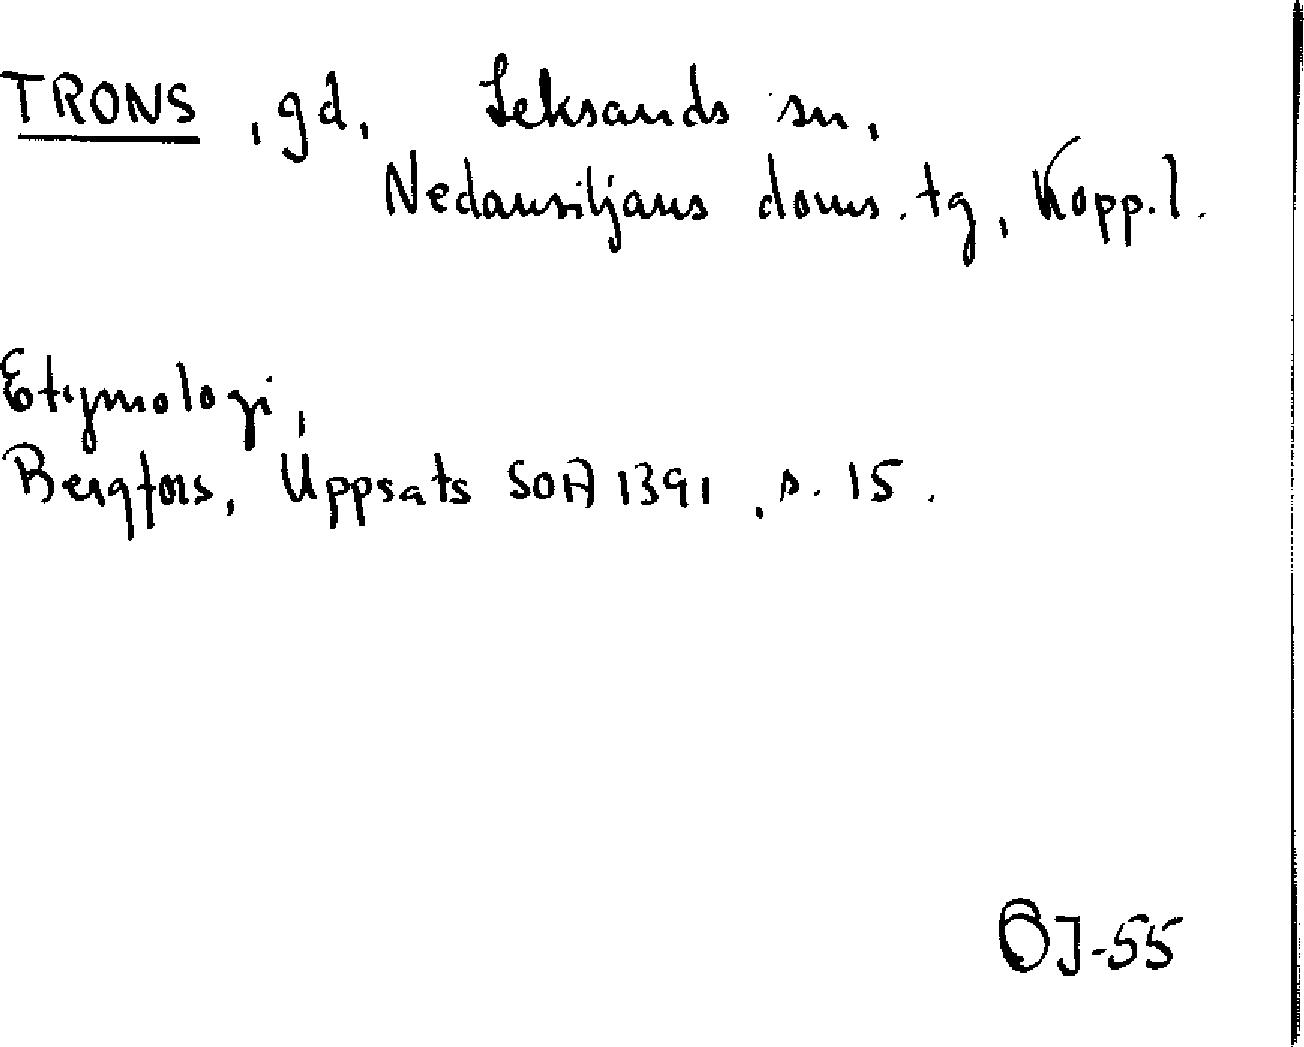 TRONS, gd, Leksands sn,
Nedansiljans doms. tg, Kopp. l.
Etymologi,
Bergfors, Uppsats SOA 1391, s. 15.
BJ-55